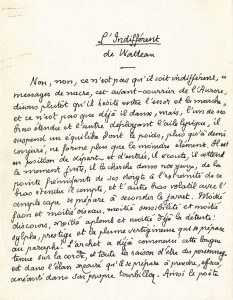 L'Indifférent
de Watteau
Non, non, ce n'est pas qu'il soit indifférent, ce
messager de nacre, cet avant-courrier de l'Aurore,
disons plutôt qu'il hésite entre l'essor et la marche,
et ce n'est pas que déjà il danse, mais l'un de ses
bras étendu et l'autre déployant l'aile lyrique, il
suspend un équilibre dont le poids, plus qu'à demi
conjuré, ne forme plus que le moindre élément. Il est
en position de départ et d'entrée, il écoute, il attend
le moment juste, il le cherche dans nos yeux, de la
pointe frémissante de ses doigts à l'extrémité de ce
bras étendu il compte, et l'autre bras volatil avec l'
ample cape se prépare à seconder le jarret. Moitié
faon et moitié oiseau, moitié sensibilité et moitié
discours, moitié aplomb et moitié déjà la détente!
sylphe, prestige, et la plume vertigineuse qui se prépare
au paraphe! L'archet a déjà commencé cette longue
tenue sur la corde, et toute la raison d'être du personnage
est dans l'élan mesuré qu'il se prépare à prendre, effacé,
anéanti dans son propre tourbillon. Ainsi le poète